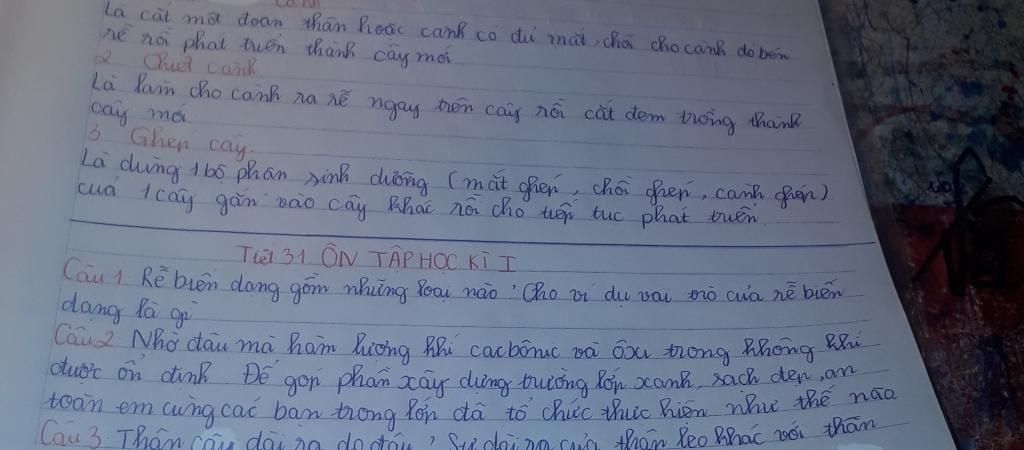 Là cắt một đoạn thân hoặc cành có đủ mắt, chồi cho cành đó bén
rễ rồi phát triển thành cây mới
2 Chiết cành
Là làm cho cành ra rễ ngay trên cây rồi cắt đem trồng thành
cây mới
3. Ghép cây.
Là dùng 1 bộ phận sinh dưỡng (mắt ghép, chồi ghép, cành ghép)
của 1 cây gắn vào cây khác rồi cho tiếp tục phát triển.
Tiết 31 ÔN TẬP HỌC KÌ I
Câu 1 Rễ biến dạng gồm những loại nào? Cho ví dụ vai trò của rễ biến
dạng là gì
Câu 2 Nhờ đâu mà hàm lượng khí cacbônic và ôxi trong không khí
được ổn định. Để góp phần xây dựng trường lớp xanh, sạch đẹp, an
toàn em cùng các bạn trong lớp đã tổ chức thực hiện như thế nào
Câu 3. Thân cây dài ra do đâu? Sự dài ra của thân leo khác với thân